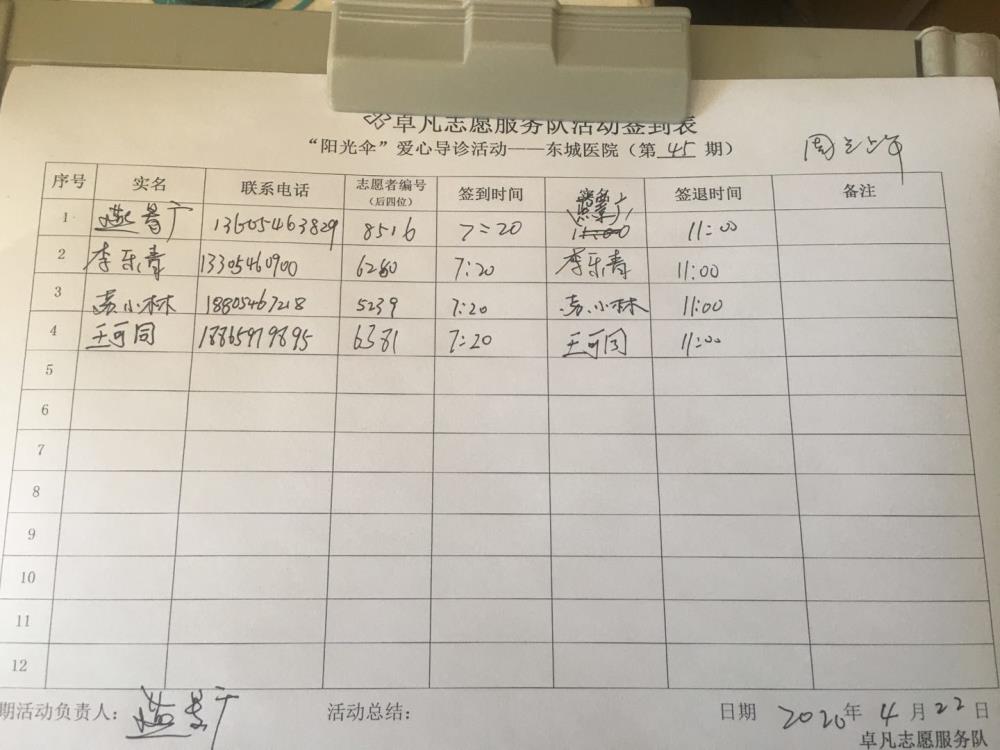 卓凡志愿服务队活动签到表
“阳光伞”爱心导诊活动——东城医院（第 45 期）
周三上午
序号 实名 联系电话 志愿者编号（后四位） 签到时间 签退时间 备注
1 13605463829 8516 7:20 11:00 11:00
2 李乐青 13305460900 6260 7:20 李乐青 11:00
3 苏小林 18805467218 5239 7:20 苏小林 11:00
4 王可同 18865979895 6381 7:20 王可同 11:00
5
6
7
8
9
10
11
12
期活动负责人： 活动总结： 日期 2020年 4月22日
卓凡志愿服务队